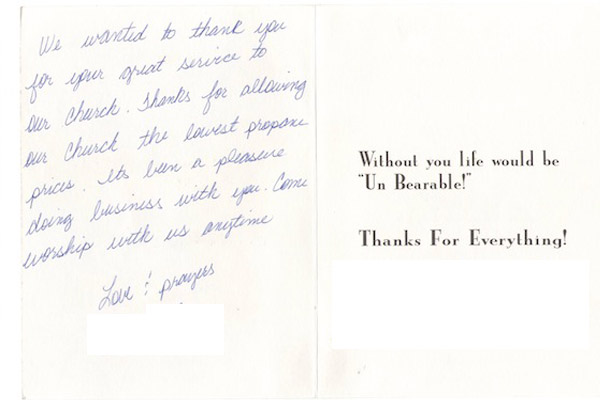 We wanted to thank you
for your great service to
our church. Thanks for allowing
our church the lowest propane
prices. Its been a pleasure
doing business with you. Come
worship with us anytime
Love & prayers
Without you life would be
"Un Bearable!"
Thanks For Everything!